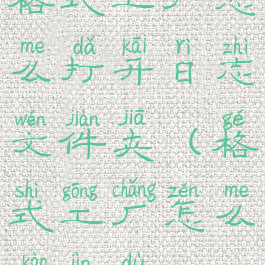 格式工厂怎
me dǎ kāi rì zhì
么打开日志
wén jiàn jiā gé
文件夹（格
shì gōng chǎng zěn me
式工厂怎么
kòn jìn dù